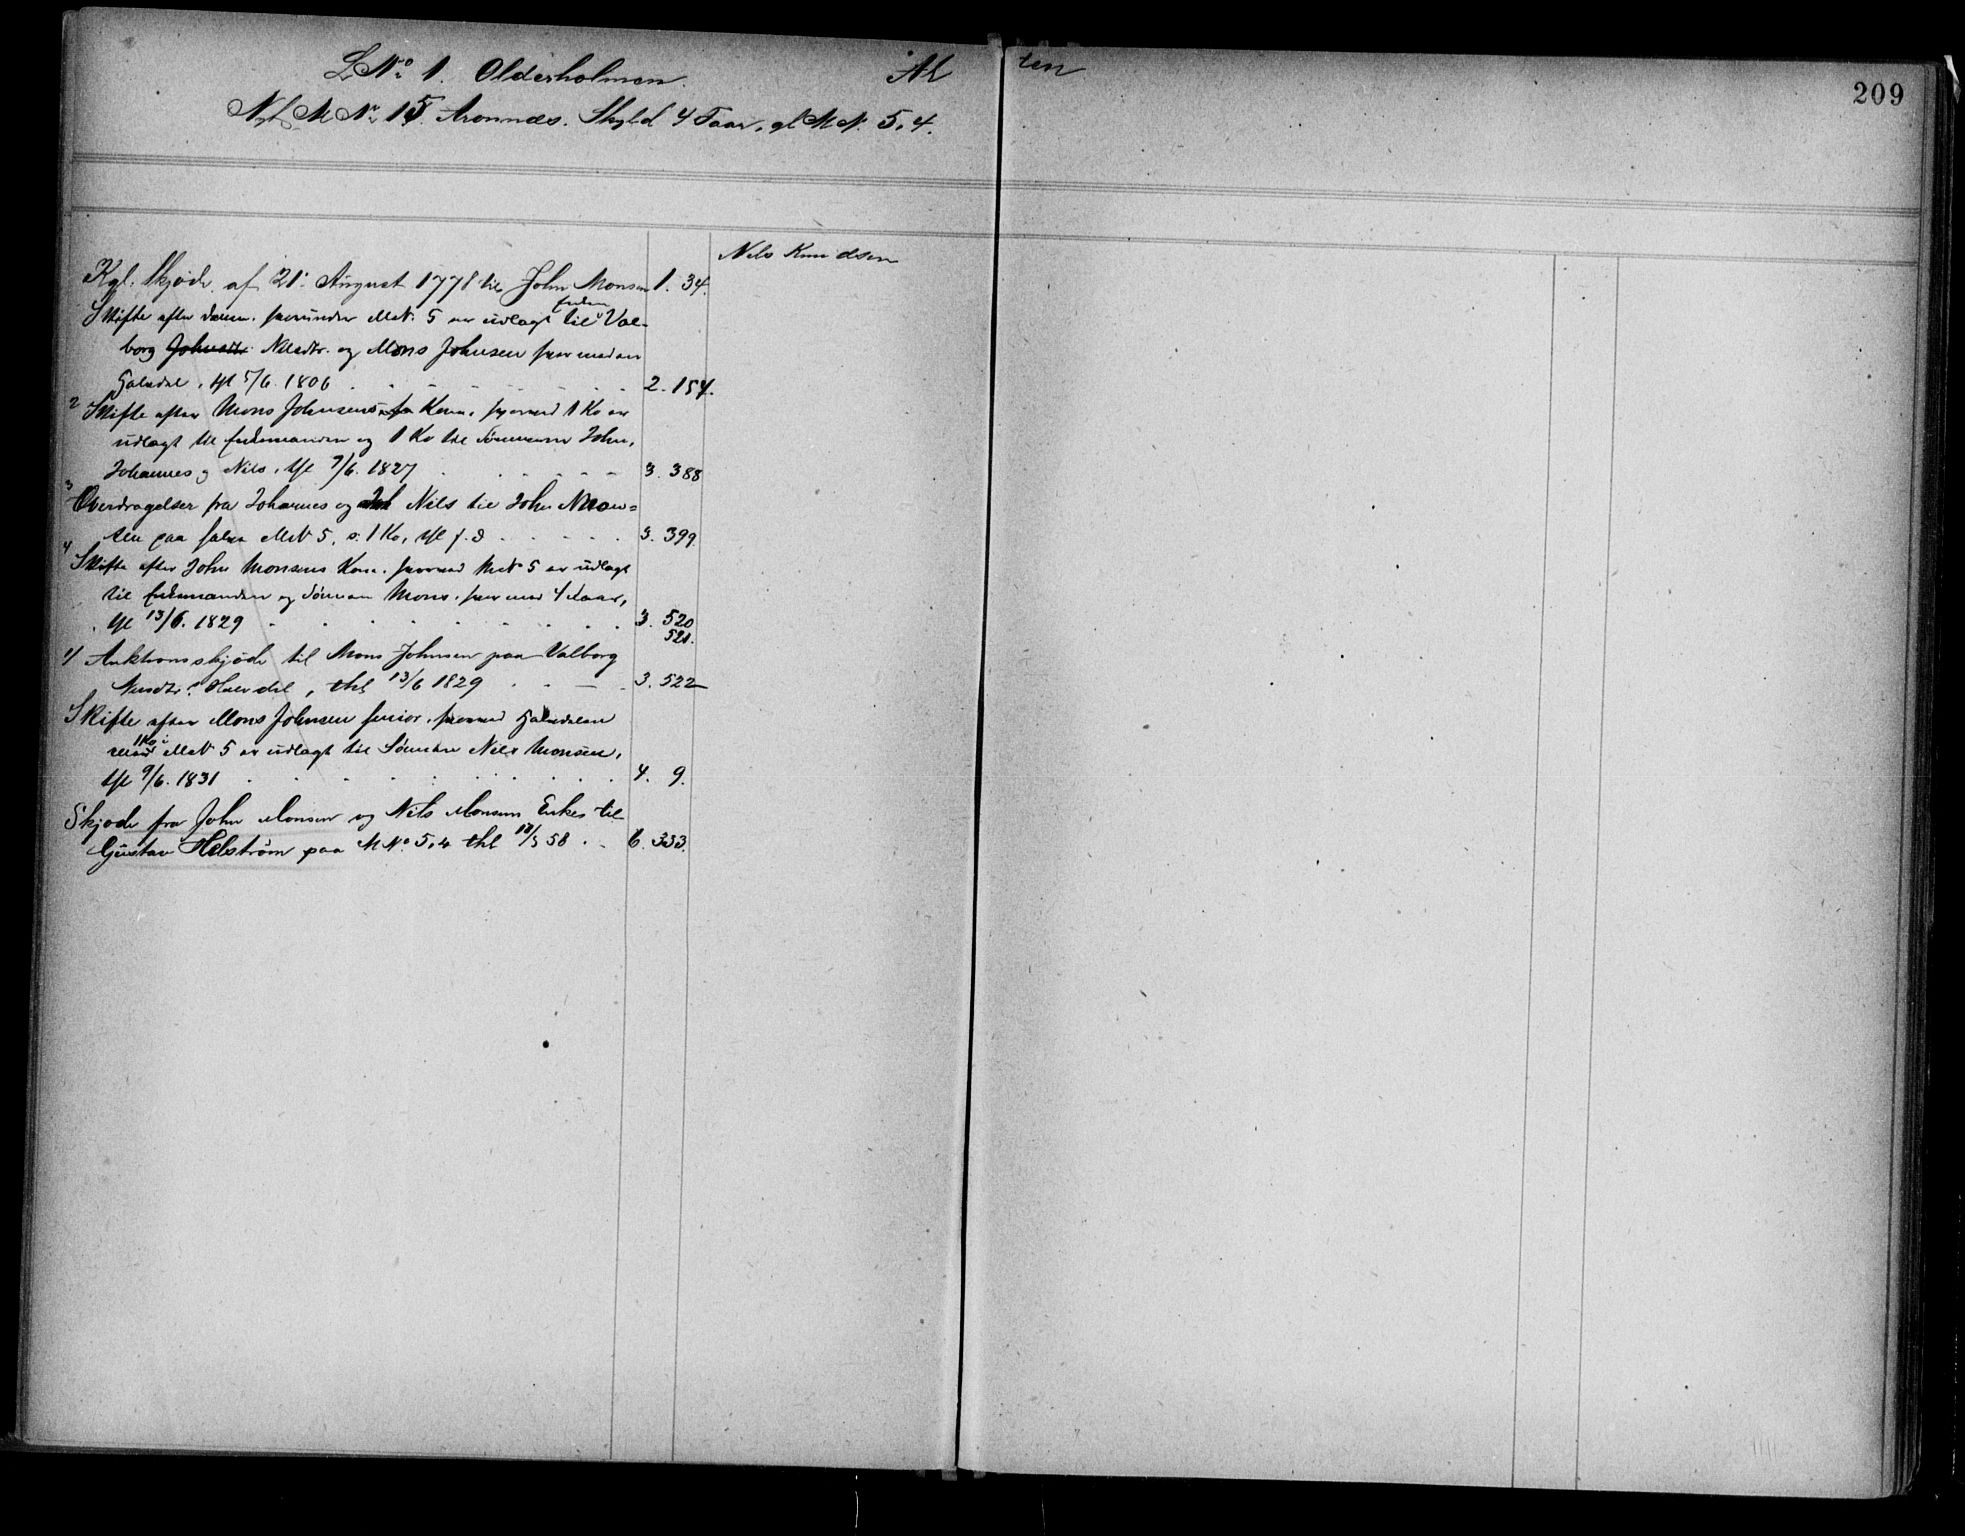 L. No 1. Olderholmen. Al ten
209
Nyt M No 15. Aronnæs. Skyld 4 Faar, gl. M N. 5, 4.
Nils Knudsen
Kgl. Skjøde af 21. August 1778 til John Monsen 1. 34.
Skifte efter denn. hvorunder M N. 5 er udlagt til Enken Val-
borg Johnsdtr. Nilsdtr. og Mons Johnsen hver med en
Halvdel, thl 5/6. 1806 2. 154.
2 Skifte efter Mons Johnsens Kone, hvorved 1 Ko er
udlagt til Enkemanden og 1 Ko til Sønnerne John,
Johannes og Nils, thl 7/6. 1827 3. 388
3 Overdragelser fra Johannes og Nils til John Mon-
sen paa halve M N 5, s. 1 Ko, thl s. d 3. 399.
4 Skifte efter John Monsens Kone. hvorved M N 5 er udlagt
til Enkemanden og Sønnen Mons. hver med 4 Faar,
thl 13/6. 1829 3. 520
521.
1/ Auktionsskjøde til Mons Johnsen paa Valborg
Nilsdtrs Halvdel, thl 13/6 1829 3. 522
Skifte efter Mons Johnsen senior. hvorved Halvdelen
med 1 Ko i M N 5 er udlagt til Sønnen Nils Monsen,
thl 9/6. 1831 4. 9.
Skjøde fra John Monsen og Nils Monsens Enkes til
Gustav Helström paa M No. 5, 4 thl 18/3 58 6. 333.